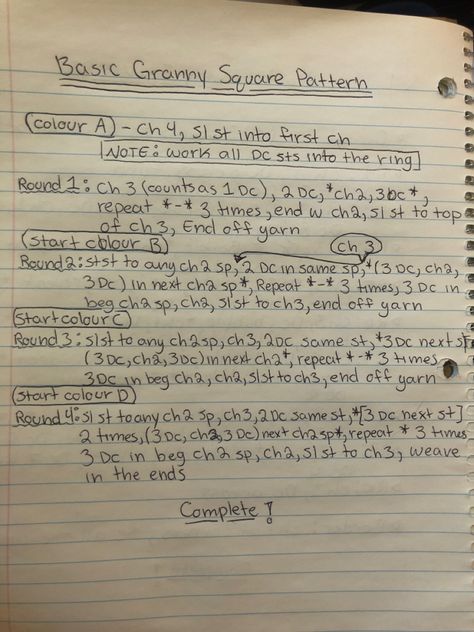 Basic Granny Square Pattern
(Colour A) - ch 4, sl st into first ch
NOTE: work all DC sts into the ring
Round 1: ch 3 (counts as 1 DC), 2 DC, *ch2, 3DC*,
repeat *-* 3 times, end w ch2, sl st to top
of ch 3, End off yarn
(Start colour B) ch 3
Round 2: sl st to any ch2 sp, 2 DC in same sp, *(3 DC, ch2,
3 DC) in next ch2 sp*, Repeat *-* 3 times, 3 DC in
beg ch2 sp, ch2, sl st to ch3, end off yarn
(Start colour C)
Round 3: sl st to any ch2 sp, ch3, 2 DC same st, *3DC next st
(3 DC, ch2, 3DC) in next ch2*, repeat *-* 3 times
3DC in beg ch2, ch2, sl st to ch3, end off yarn
(Start colour D)
Round 4: sl st to any ch2 sp, ch3, 2 DC same st, *[3 DC next st]
2 times, (3 DC, ch2, 3 DC) next ch2 sp*, repeat * 3 times
3 DC in beg ch2 sp, ch2, sl st to ch3, weave
in the ends
Complete!